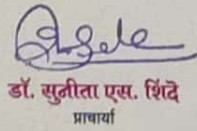 डॉ. सुनीता एस. शिंदे
प्राचार्या